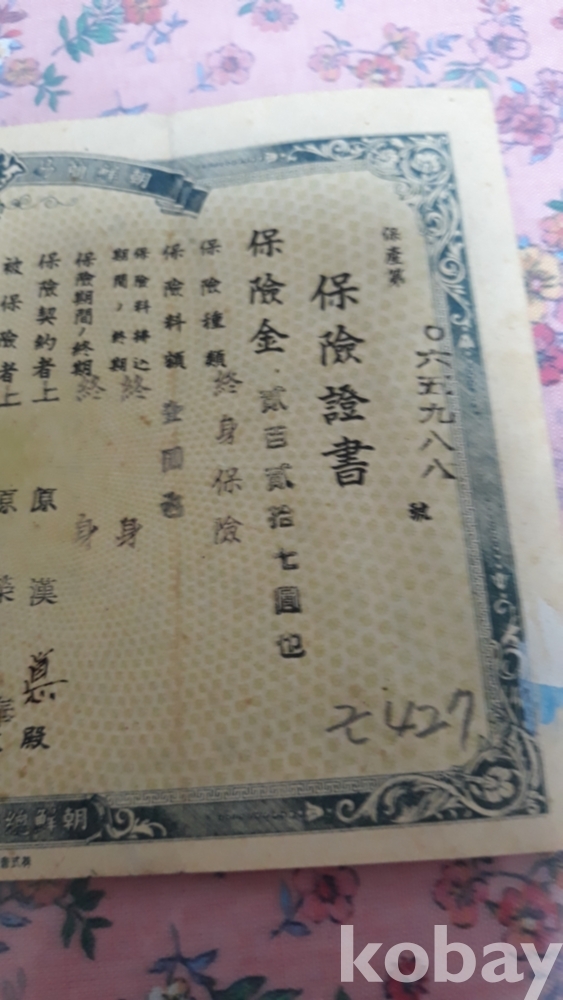 保產第
〇六五九八八
號
保險證書
保險金 貳百貳拾七圓也
保險種類 終身保險
保險料額 壹圓
保險料拂込
期間ノ終期 終身
保險期間ノ終期 終身
保險契約者上 原 漢 殿
被保險者上 原
그427
朝鮮總
株式會
kobay